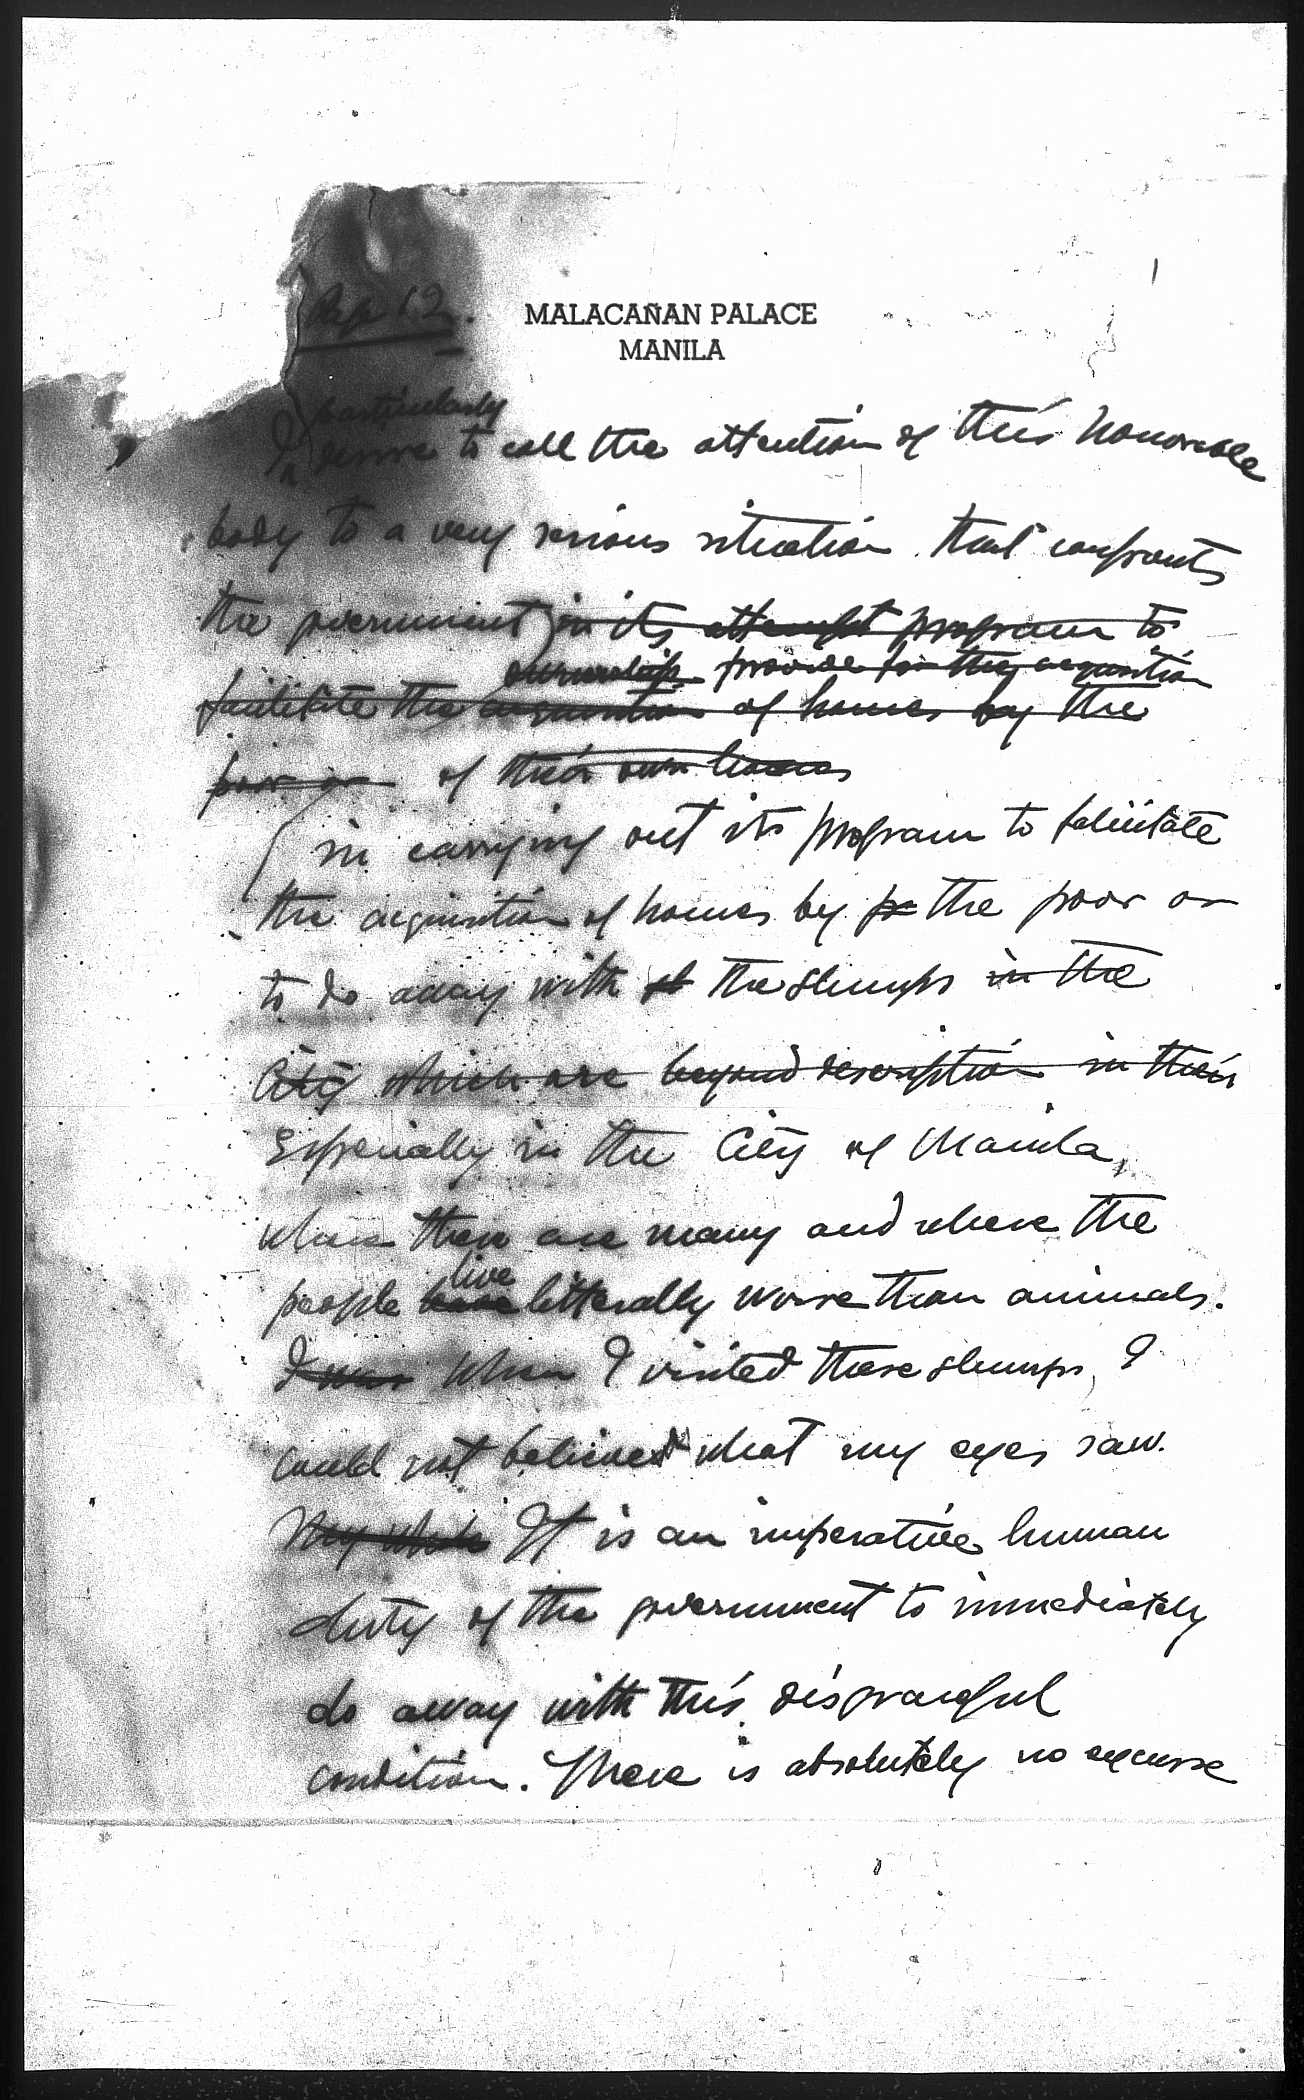 1
Pp 12.
MALACAÑAN PALACE
MANILA
particularly
I desire to call the attention of this honorable
body to a very serious situation that confronts
the government in its attempt program to
ownership provide for the acquisition
facilitate the acquisition of homes by the
poor or of their own homes
in carrying out its program to falicitate
the acquisition of homes by po the poor or
to do away with st the slumps in the
City which are beyond description in their
Especially in the City of Manila,
where there are many and where the
live
people have litterally worse than animals.
I was When I visited these slumps, I
could not believed what my eyes saw.
My whole It is an imperative human
duty of the government to immediately
do away with this disgraceful
condition. There is absolutely no excuse